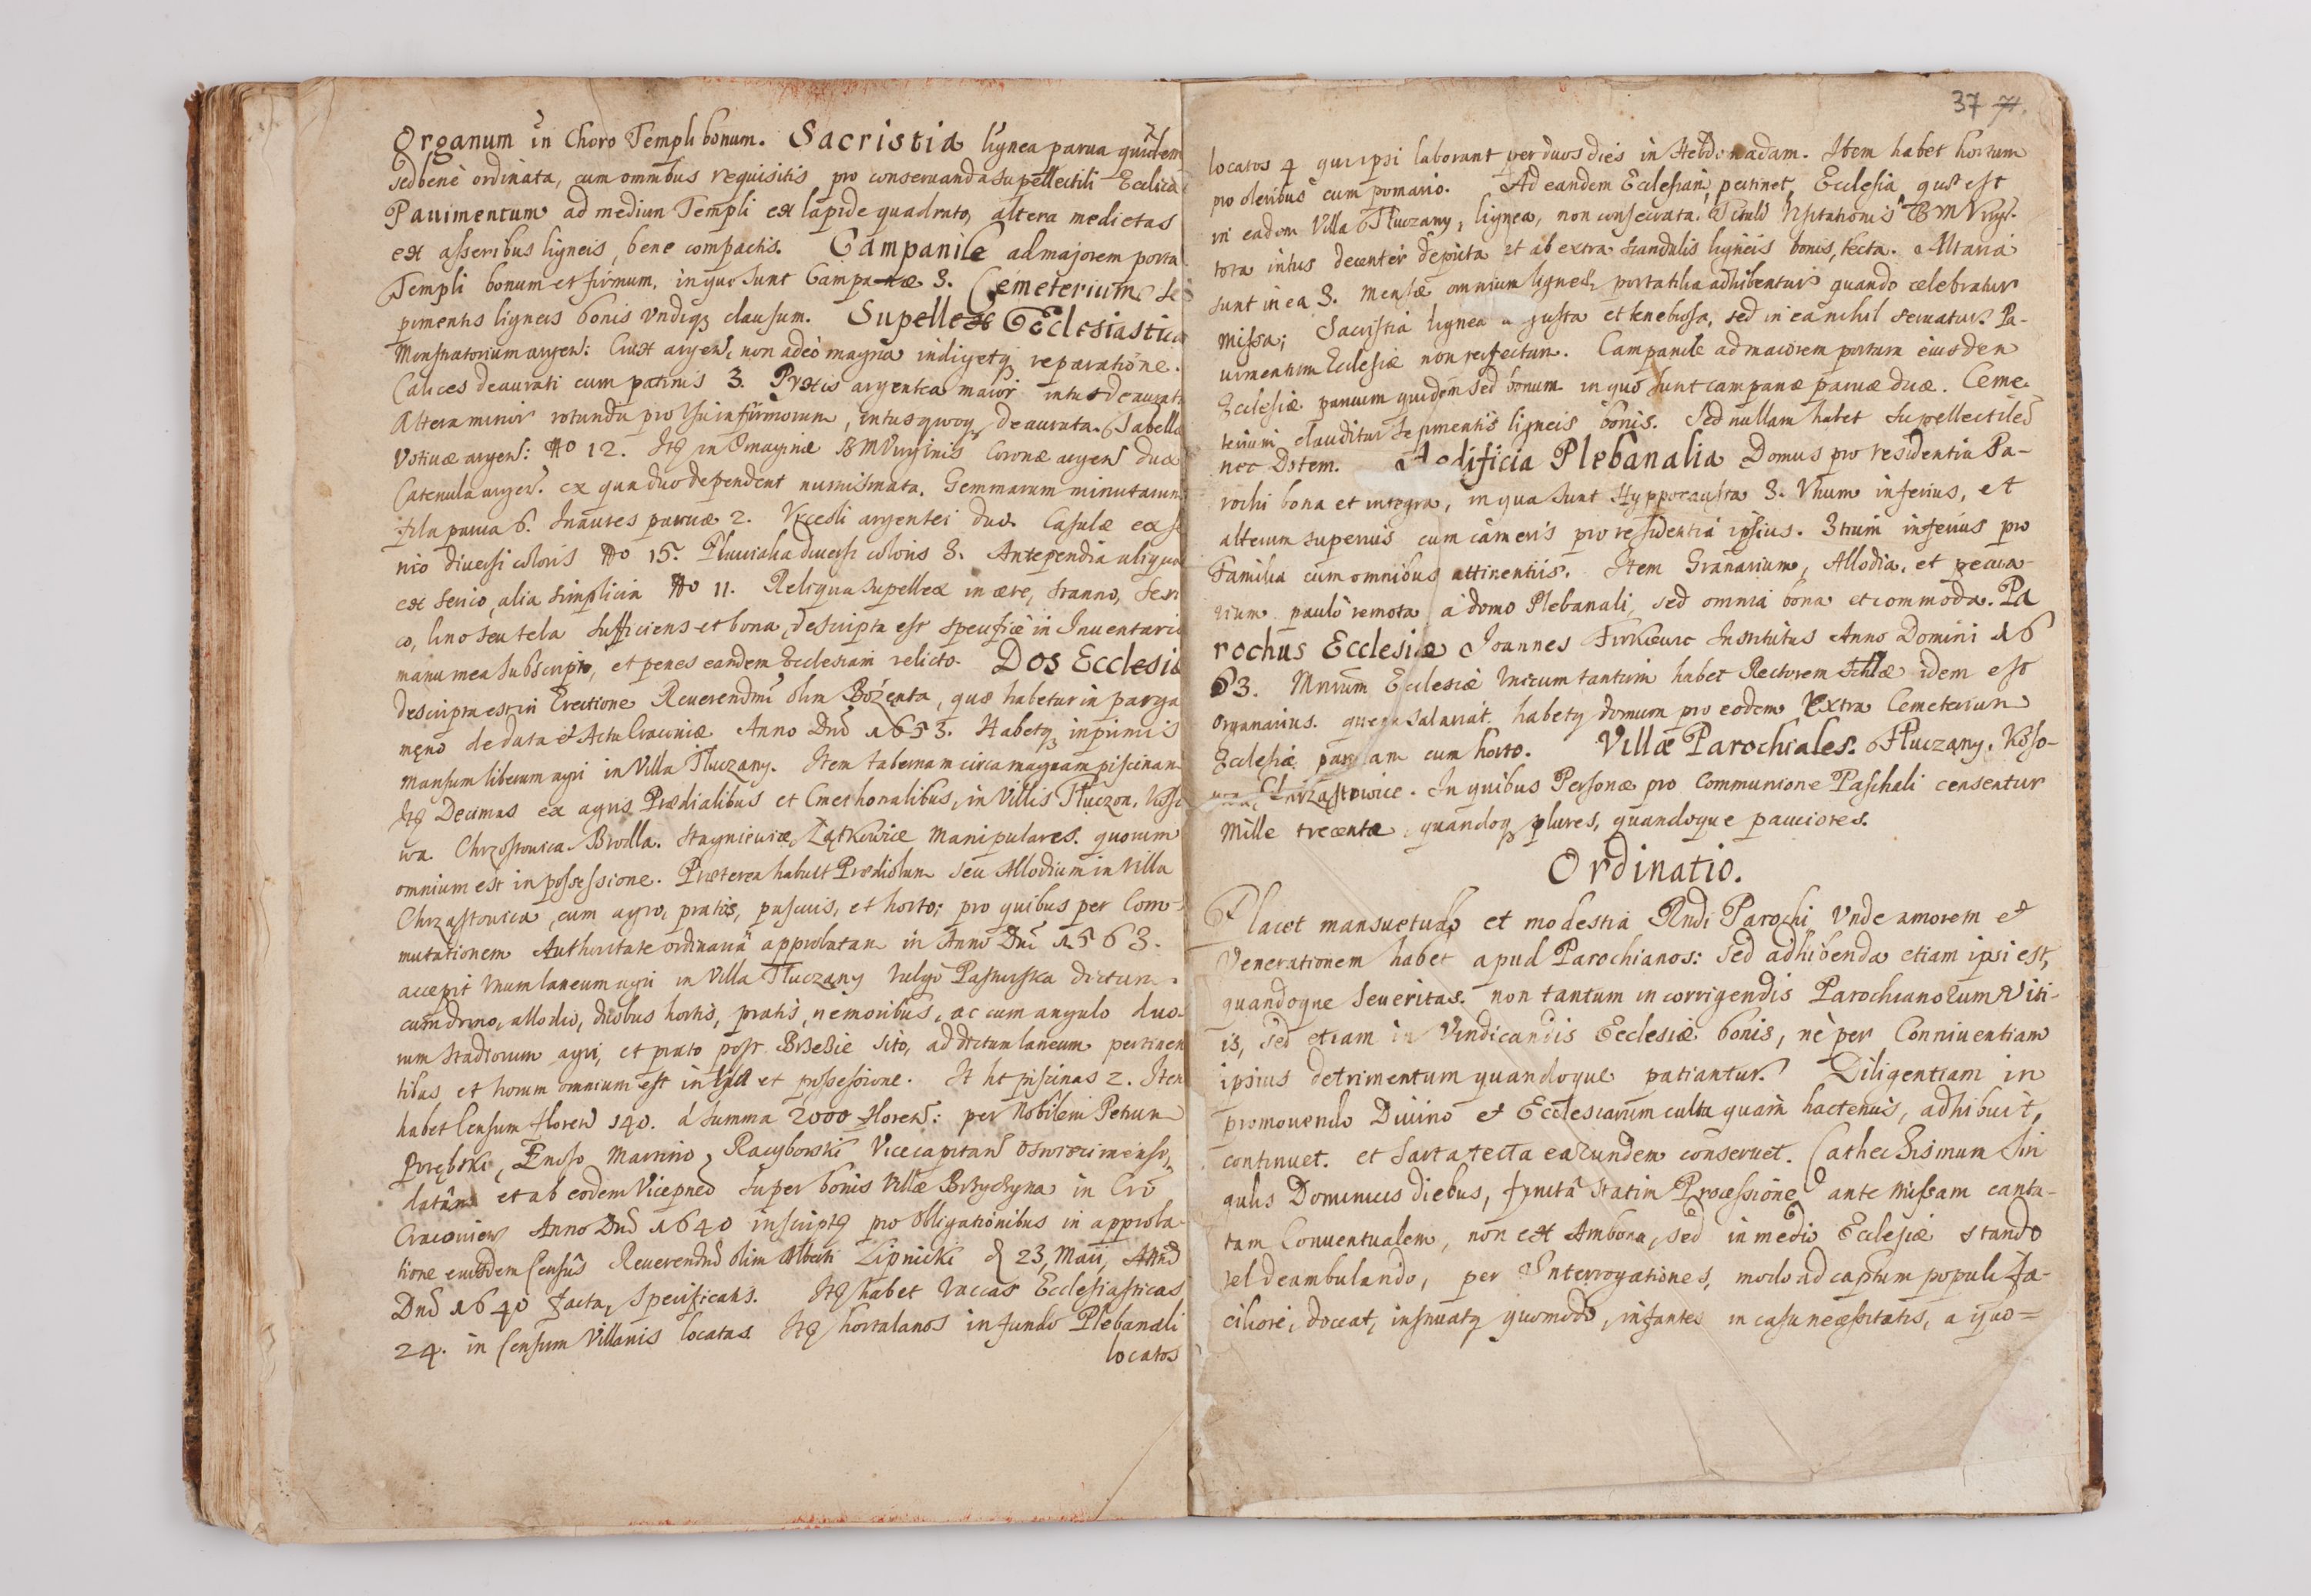 Organum in Choro Templi bonum. Sacristia lignea parua quidem
sed bene ordinata, cum omnibus requisitis pro conseruanda supellectili Ecclica
Pauimentum ad medium Templi ex lapide quadrato, altera medietas
ex asseribus ligneis, bene compactis. Campanile ad majorem porta
Templi bonum et firmum, in quo sunt Campanæ 3. Cemeterium se
pimentis ligneis bonis vndiq; clausum. Supellex Ecclesiastica
Monstratorium argen: Crux argen, non adeò magna indigetq; reparatione.
Calices deaurati cum patinis 3. Pyxis argentea maior intus deaurat
Altera minor rotunda pro vsu infirmorum, intus quoq; deaurata. Tabellæ
Votiuæ argen: No 12. Itē in Imagine BM Virginis Coronæ argen duæ
Catenula argen. ex qua duo dependent numismata. Gemmarum minutarum
fila parua 6. Inaures paruæ 2. Vrceoli argentei duo. Casulæ ex se
rico diuersi coloris No 15. Pluuialia diuersi coloris 3. Antependia aliqua
ex serico, alia simplicia No 11. Reliqua supellex in ære, stanno, seri
co, lino seu tela sufficiens et bona, descripta est specificè in Inventario
manu mea subscripto, et penes eandem Ecclesiam relicto. Dos Ecclesiæ
descripta est in Erectione Reuerendmi olim Bożenta, quæ habetur in parga
meno de data et Actu Cracouiæ Anno Dnī 1653. Habetq; inprimis
mansum liberum agri in Villa Tłuczany. Item tabernam circa magnam piscinam
Itē Decimas ex agris Prædialibus et Cmethonalibus, in Villis Tłuczan, Kosso
wa Chrzostowica Brodla. Stagnicuiæ, Łątkowicæ Manipulares. quorum
omnium est in possessione. Præterea habuit Prædiolum seu Allodium in Villa
Chrząstowica, cum agro, pratis, pascuis, et horto; pro quibus per Com-
mutationem Authoritate ordinariâ approbatam in Anno Dnī 1563.
accepit vnum laneum agri in Villa Tłuczany vulgo Pasturska dictum.
cum domo, allodio, duobus hortis, pratis, nemoribus, ac cum angulo duo-
rum stadiorum agri, et prato post Brzezie sito, ad dictum laneum pertinen
tibus et horum omnium est in vsu et possessione. It ht piscinas 2. Item
habet Censum floren 140. à summa 2000 floren: per Nobilem Petrum
Porębski, Gnoso Marino Racyborski Vicecapitan Oswiecimensi,
datâ et ab eodem Vicepneo super bonis Villæ Brzyczyna in Cro
Cracouien Anno Dnī 1640 inscriptq; pro Obligationibus in approba-
tione eiusdem Censûs Reuerendmi olim Alberti Lipnicki d 23, Maii, Anno
Dnī 1640 facta, specificatis. Itē habet vaccas Ecclesiasticas
24. in Censum Villanis locatas. Itē hortulanos in fundo Plebanali
locatos
37
locatos 4 qui ipsi laborant per duos dies in Hebdomadam. Item habet hortum
pro oleribus cum pomario. Ad eandem Ecclesiam, pertinet, Ecclesia quæ est
in eadem Villa Tłuczany, lignea, non consecrata. Tituli Visitationis BM Virg.
tota intus decenter depicta et ab extra scandulis ligneis bonis, tecta. Altaria
sunt in ea 3. Mensæ omnium ligneæ, portatilia adhibentur quando celebratur
missa; Sacristia lignea angusta et tenebrosa, sed in ea nihil seruatur. Pa-
uimentum Ecclesiæ non refectum. Campanile ad maiorem portam eiusdem
Ecclesiæ paruum quidem sed bonum in quo sunt campanæ paruæ duæ. Ceme-
terium clauditur sepimentis ligneis bonis. Sed nullam habet supellectilem
nec Dotem. Ædificia Plebanalia Domus pro residentia Pa-
rochi bona et integra, in qua sunt Hyppocausta 3. Vnum inferius, et
alterum superius cum cameris pro residentia ipsius. 3tium inferius pro
Familia cum omnibus attinentiis. Item Granarium, Allodia, et pecua-
rium paulò remota à domo Plebanali, sed omnia bona et commoda. Pa
rochus Ecclesiæ Joannes Firkowic Institutus Anno Domini 16
63. Mnrum Ecclesiæ vnicum tantum habet Rectorem scholæ idem est
Organarius. quem salariat. habetq; domum pro eodem Extra Cemeterium
Ecclesiæ paruam cum horto. Villæ Parochiales. Tłuczany, Kosso-
wa, Chrząstowice. In quibus Personæ pro Communione Paschali censentur
Mille trecentæ, quandoq; plures, quandoque pauciores.
Ordinatio.
Placet mansuetudo et modestia Rndi Parochi Vnde amorem et
Venerationem habet apud Parochianos: Sed adhibenda etiam ipsi est,
quandoque Seueritas. non tantum in corrigendis Parochianorum Viti-
is, sed etiam in Vindicandis Ecclesiæ bonis, nè per Conniuentiam
ipsius detrimentum quandoque patiantur. Diligentiam in
promouendo Diuino et Ecclesiarum cultu quam hactenus, adhibuit,
continuet. et Sarta tecta earundem conseruet. Cathechismum Sin
gulis Dominicis diebus, finitâ statim Processione ante Missam canta-
tam Conuentualem, non ex Ambona, sed in medio Ecclesiæ stando
vel deambulando, per Interrogationes, modo ad captum populi fa-
ciliore, doceat, insinuatq; quomodo, infantes in casu necessitatis, a quo-